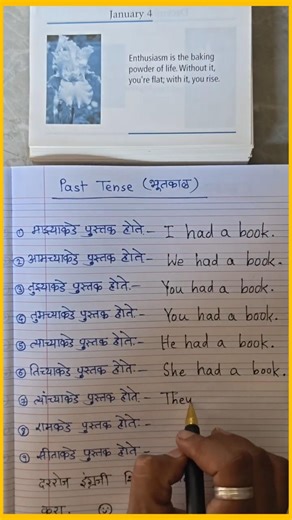 January 4
Enthusiasm is the baking
powder of life. Without it,
you're flat; with it, you rise.
Past Tense (भूतकाळ)
① माझ्याकडे पुस्तक होते - I had a book.
② आमच्याकडे पुस्तक होते - We had a book.
③ तुझ्याकडे पुस्तक होते - You had a book.
④ तुमच्याकडे पुस्तक होते - You had a book.
⑤ त्याच्याकडे पुस्तक होते - He had a book.
⑥ तिच्याकडे पुस्तक होते - She had a book.
⑦ त्यांच्याकडे पुस्तक होते - They
⑧ रामकडे पुस्तक होते -
⑨ सीताकडे पुस्तक होते -
दररोज इंग्रजी
करा.